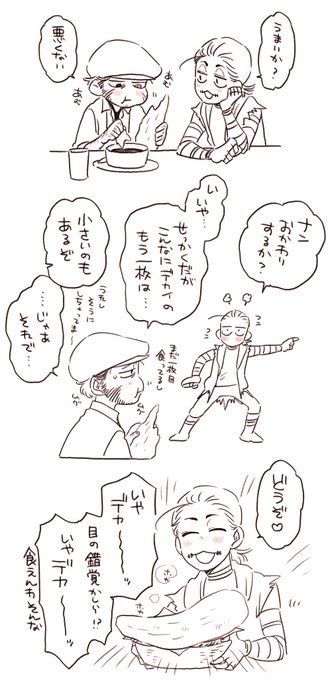 うまいか?
悪くない
あむ
あむ
ナン
おかわり
するか?
い
いや…
せっかくだが
こんなにデカイの
もう一枚は…
小さいのも
あるぞ
……じゃあ
それで…
まだ一枚目
食ってるし
どうぞ♡
いや
デカ〜〜ッ
目の錯覚かしら!?
いやデカ〜〜ッ
食えんわそんな